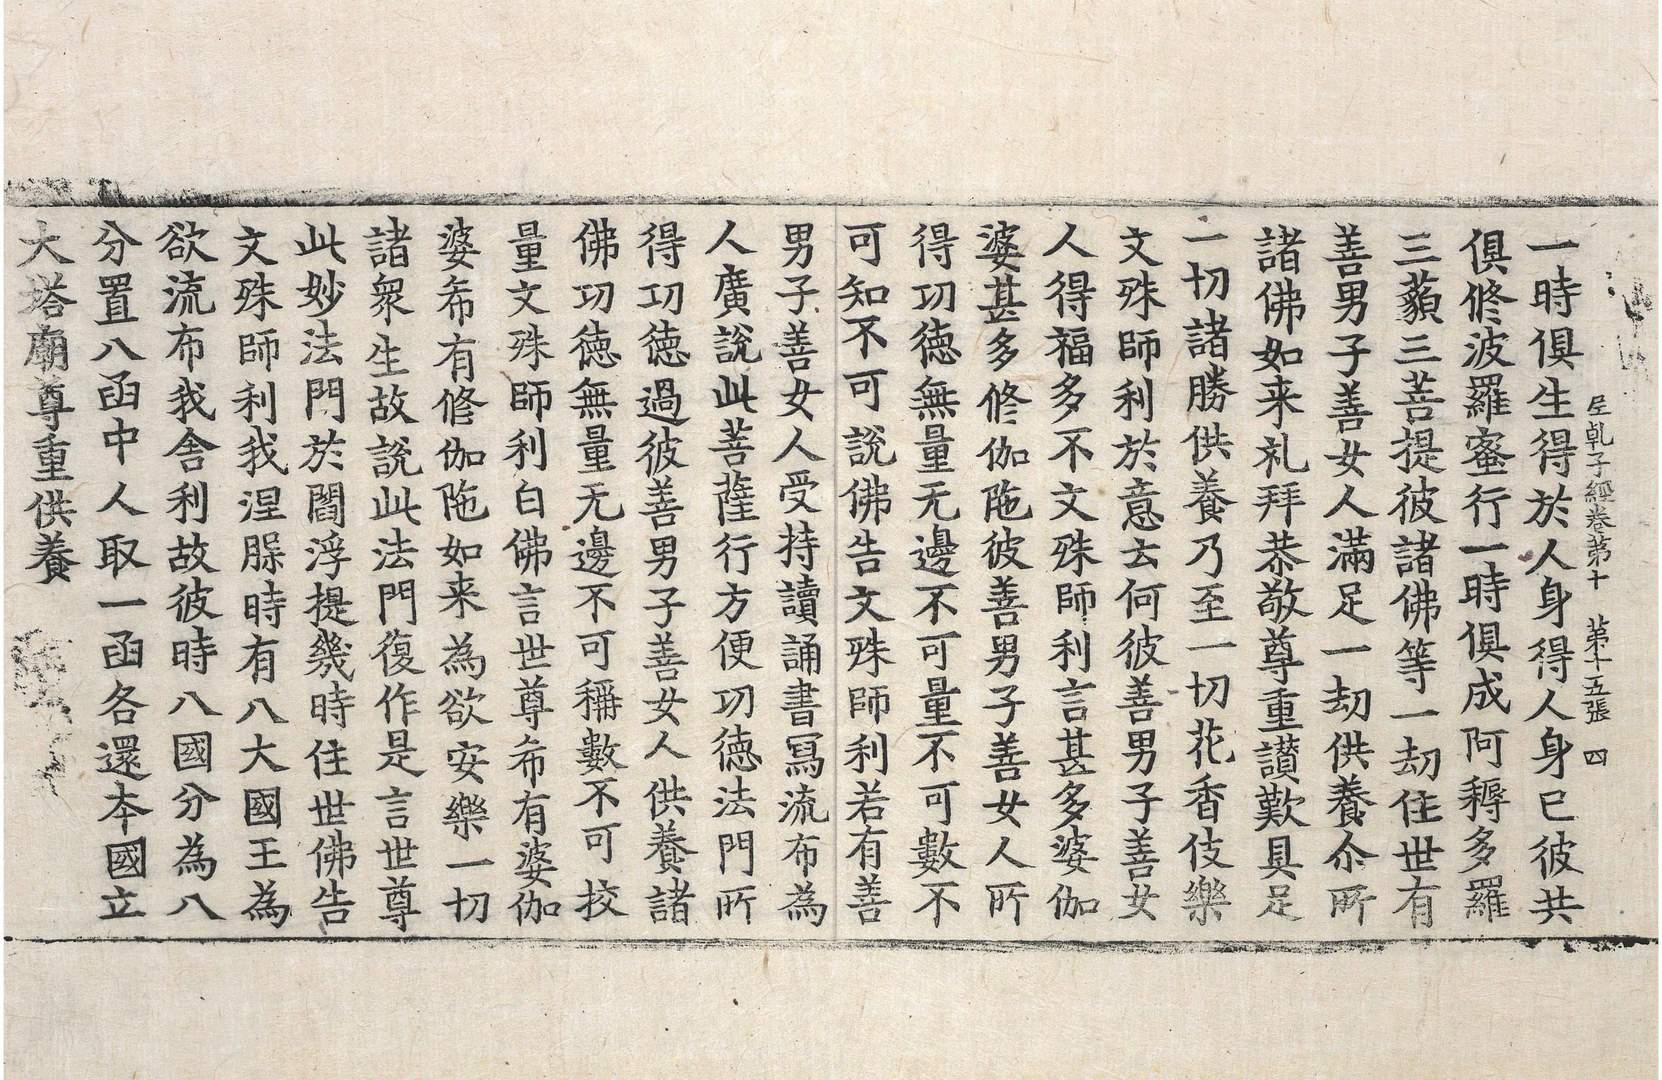 一時俱生得於人身得人身已彼共
𡰱乹子經卷第十　第十五張　四
俱修波羅蜜行一時俱成阿耨多羅
三藐三菩提彼諸佛等一劫住世有
善男子善女人滿足一劫供養尒所
諸佛如来礼拜恭敬尊重讃歎具足
一切諸勝供養乃至一切花香伎樂
文殊師利於意云何彼善男子善女
人得福多不文殊師利言甚多婆伽
婆甚多修伽陁彼善男子善女人所
得功徳無量无邊不可量不可數不
可知不可說佛告文殊師利若有善
男子善女人受持讀誦書冩流布為
人廣說此菩薩行方便功徳法門所
得功徳過彼善男子善女人供養諸
佛功徳無量无邊不可稱數不可挍
量文殊師利白佛言世尊希有婆伽
婆希有修伽陁如来為欲安樂一切
諸衆生故說此法門復作是言世尊
此妙法門於閻浮提幾時住世佛告
文殊師利我涅槃時有八大國王為
欲流布我舎利故彼時八國分為八
分置八函中人取一函各還本國立
大塔廟尊重供養